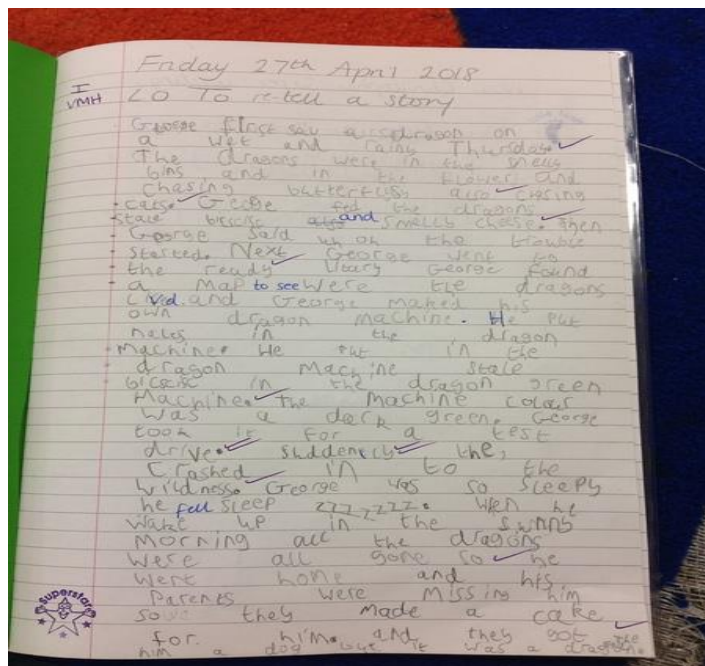 Friday 27th April 2018
I
VMH
LO To re-tell a story
George first saw a dragon on
a wet and rainy Thursday
The dragons were in the smelly
bins and in the flowers and
chasing butterflys also chasing
cats. George fed the dragons
stale biscise and smelly cheese. then
George said uh oh the trouble
started. Next George went to
the ready libary George found
a map to see were the dragons
lived. and George maked his
own dragon machine. He put
nales in the dragon
machine. He put in the
dragon machine stale
biscise in the dragon green
machine. the machine colour
was a dark green. George
took it for a test
drive. suddenely the,
crashed in to the
wildness. George was so sleepy
he fell sleep zzzzzzz. when he
wake up in the sunny
morning all the dragons
were all gone so he
went home and his
parents were missing him
so they made a cake
for him. and they got the
him a dog but it was a dragon.
Superstar